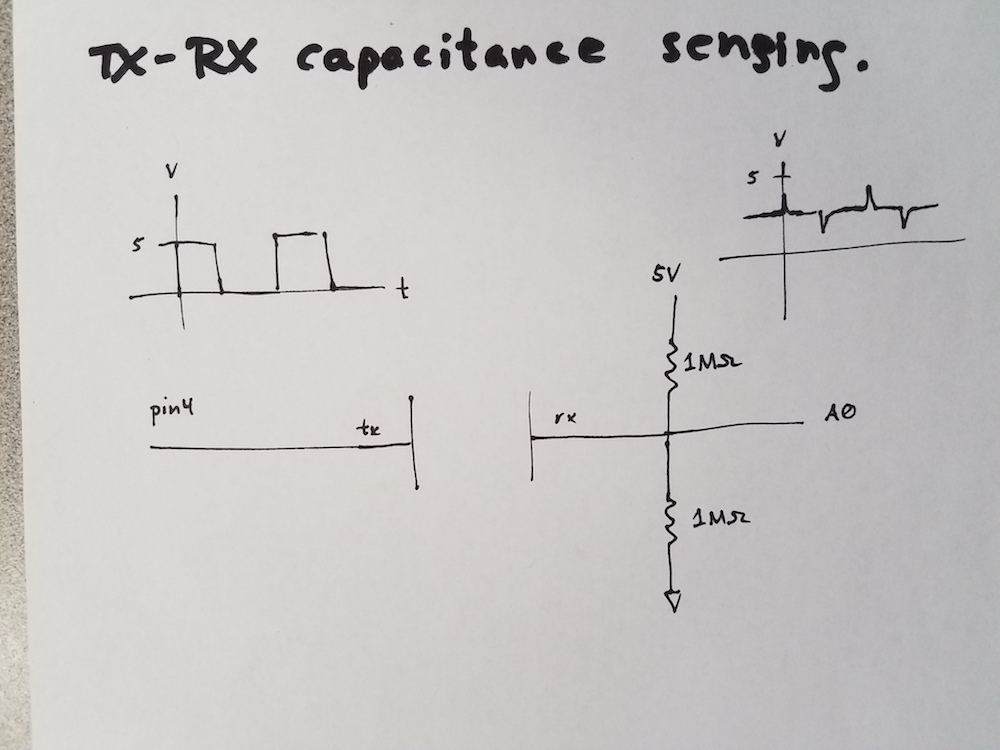 TX-RX capacitance sensing.
V
5
t
V
5
5V
1MΩ
pin4
tx
rx
A0
1MΩ